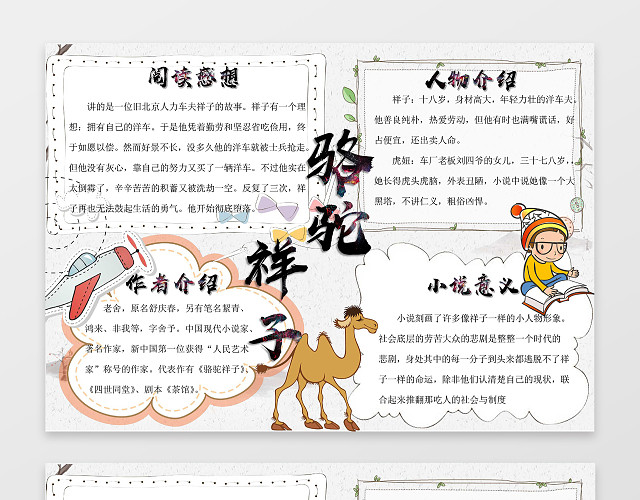 阅读感想
讲的是一位旧北京人力车夫祥子的故事。祥子有一个理
想：拥有自己的洋车。于是他凭着勤劳和坚忍省吃俭用，终
于如愿以偿。然而好景不长，没多久他的洋车就被士兵抢走。
但他没有灰心，靠自己的努力又买了一辆洋车。不过他实在
太倒霉了，辛辛苦苦的积蓄又被洗劫一空。反复了三次，祥
子再也无法鼓起生活的勇气。他开始彻底堕落。
人物介绍
祥子：十八岁，身材高大，年轻力壮的洋车夫。
他善良纯朴，热爱劳动，但他有时也满嘴谎话，好
占便宜，还出卖人命。
虎妞：车厂老板刘四爷的女儿，三十七八岁，
她长得虎头虎脑，外表丑陋，小说中说她像一个大
黑塔，不讲仁义，粗俗凶悍。
骆驼
祥子
作者介绍
老舍，原名舒庆春，另有笔名絜青、
鸿来、非我等，字舍予。中国现代小说家、
著名作家，新中国第一位获得“人民艺术
家”称号的作家。代表作有《骆驼祥子》、
《四世同堂》、剧本《茶馆》。
小说意义
小说刻画了许多像祥子一样的小人物形象。
社会底层的劳苦大众的悲剧是整整一个时代的
悲剧，身处其中的每一分子到头来都逃脱不了祥
子一样的命运，除非他们认清楚自己的现状，联
合起来推翻那吃人的社会与制度